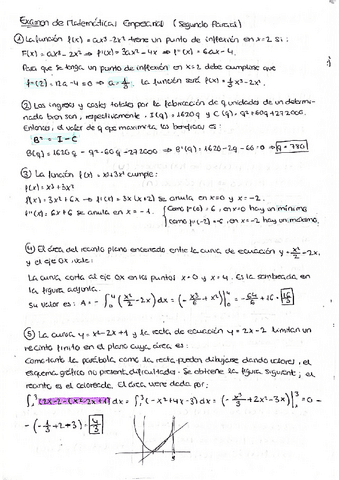 Examen de Matemáticas Empresarial (Segundo Parcial)
① La función f(x) = ax³-2x² tiene un punto de inflexión en x=2 si:
f(x) = ax³-2x² ⇒ f'(x) = 3ax²-4x ⇒ f''(x) = 6ax-4.
Para que se tenga un punto de inflexión en x=2 debe cumplirse que
f''(2) = 12a-4=0 ⇒ a=1/3. La función será f(x) = 1/3x³-2x².
② Los ingresos y costes totales por la fabricación de q unidades de un determi-
nado bien son, respectivamente, I(q) = 1620q y C(q) = q²+60q+272000.
Entonces, el valor de q que maximiza los beneficios es:
B = I - C
B(q) = 1620q - q² - 60q - 272000 ⇒ B'(q) = 1620-2q-60=0 ⇒ q=780
③ La función f(x) = x³+3x² cumple:
f(x) = x³+3x²
f'(x) = 3x²+6x → f'(x) = 3x(x+2) se anula en x=0 y x=-2.
f''(x) = 6x+6 se anula en x=-1. Como f''(0)=6, en x=0 hay un mínimo
como f''(-2)=-6, en x=-2 hay un máximo.
④ El área del recinto plano encerrado entre la curva de ecuación y=x²/2-2x,
y el eje OX vale:
La curva corta al eje OX en los puntos x=0 y x=4. Es la sombreada en
la figura adjunta.
Su valor es: A = -∫₀⁴(x²/2-2x)dx = (-x³/6+x²)|₀⁴ = -64/6+16=16/3
⑤ La curva y=x²-2x+1 y la recta de ecuación y=2x-2 limitan un
recinto finito en el plano cuya área es:
Como tanto la parábola como la recta pueden dibujarse dando valores, el
esquema gráfico no presenta dificultades. Se obtiene la figura siguiente; el
recinto es el coloreado. El área viene dada por:
∫₁³(2x-2-(x²-2x+1))dx = ∫₁³(-x²+4x-3)dx = (-x³/3+2x²-3x)|₁³ = 0-
-(-1/3+2-3)=4/3